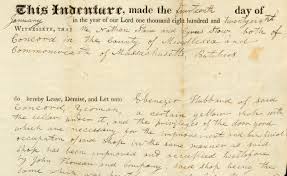 This Indenture, made the day of
January in the year of our Lord one thousand eight hundred and
Witnesseth, that We Nathan and Cyrus Stow both of
Concord in The County of Middlesex and
Commonwealth of Massachusetts, Butchers
do hereby Lease, Demise, and Let unto Ebenezer Hubbard of said
Concord Yeoman, a certain yellow shop with
the cellar under it, and the privileges of the door yard
which are necessary for the improvement and
occupation of said shop in the same manner as said
shop has been improved and occupied heretofore
by John and company said shop being the